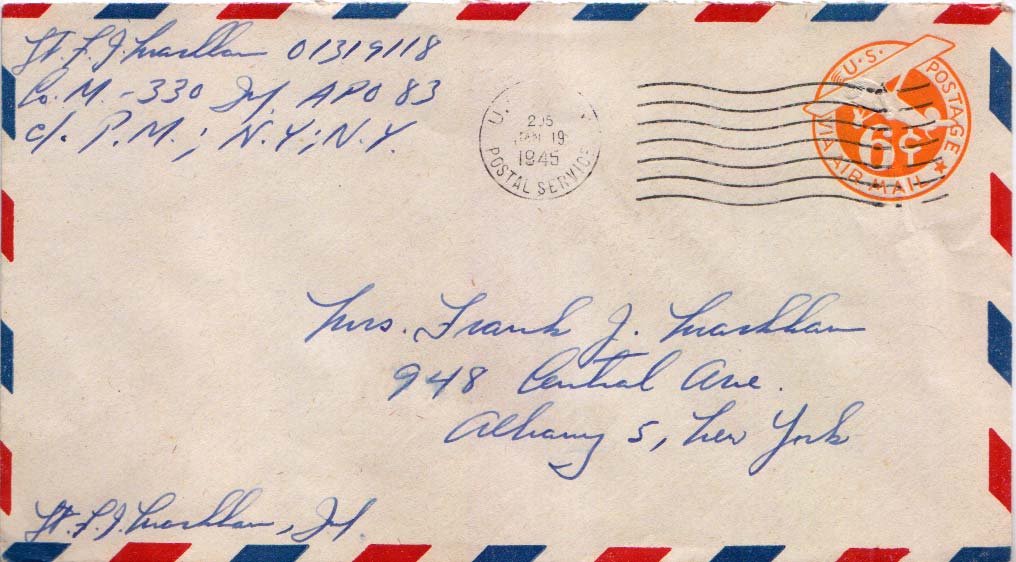 Lt. F. J. 01319118
Co. M. - 330 Inf. APO 83
c/o P.M.; N.Y.; N.Y.
U.
205
JAN 19
1945
POSTAL SERVICE
U.S. POSTAGE
6¢
VIA AIR MAIL
Mrs. Frank J.
948 Central Ave.
Albany 5, New York
Lt. F. J. , Inf.